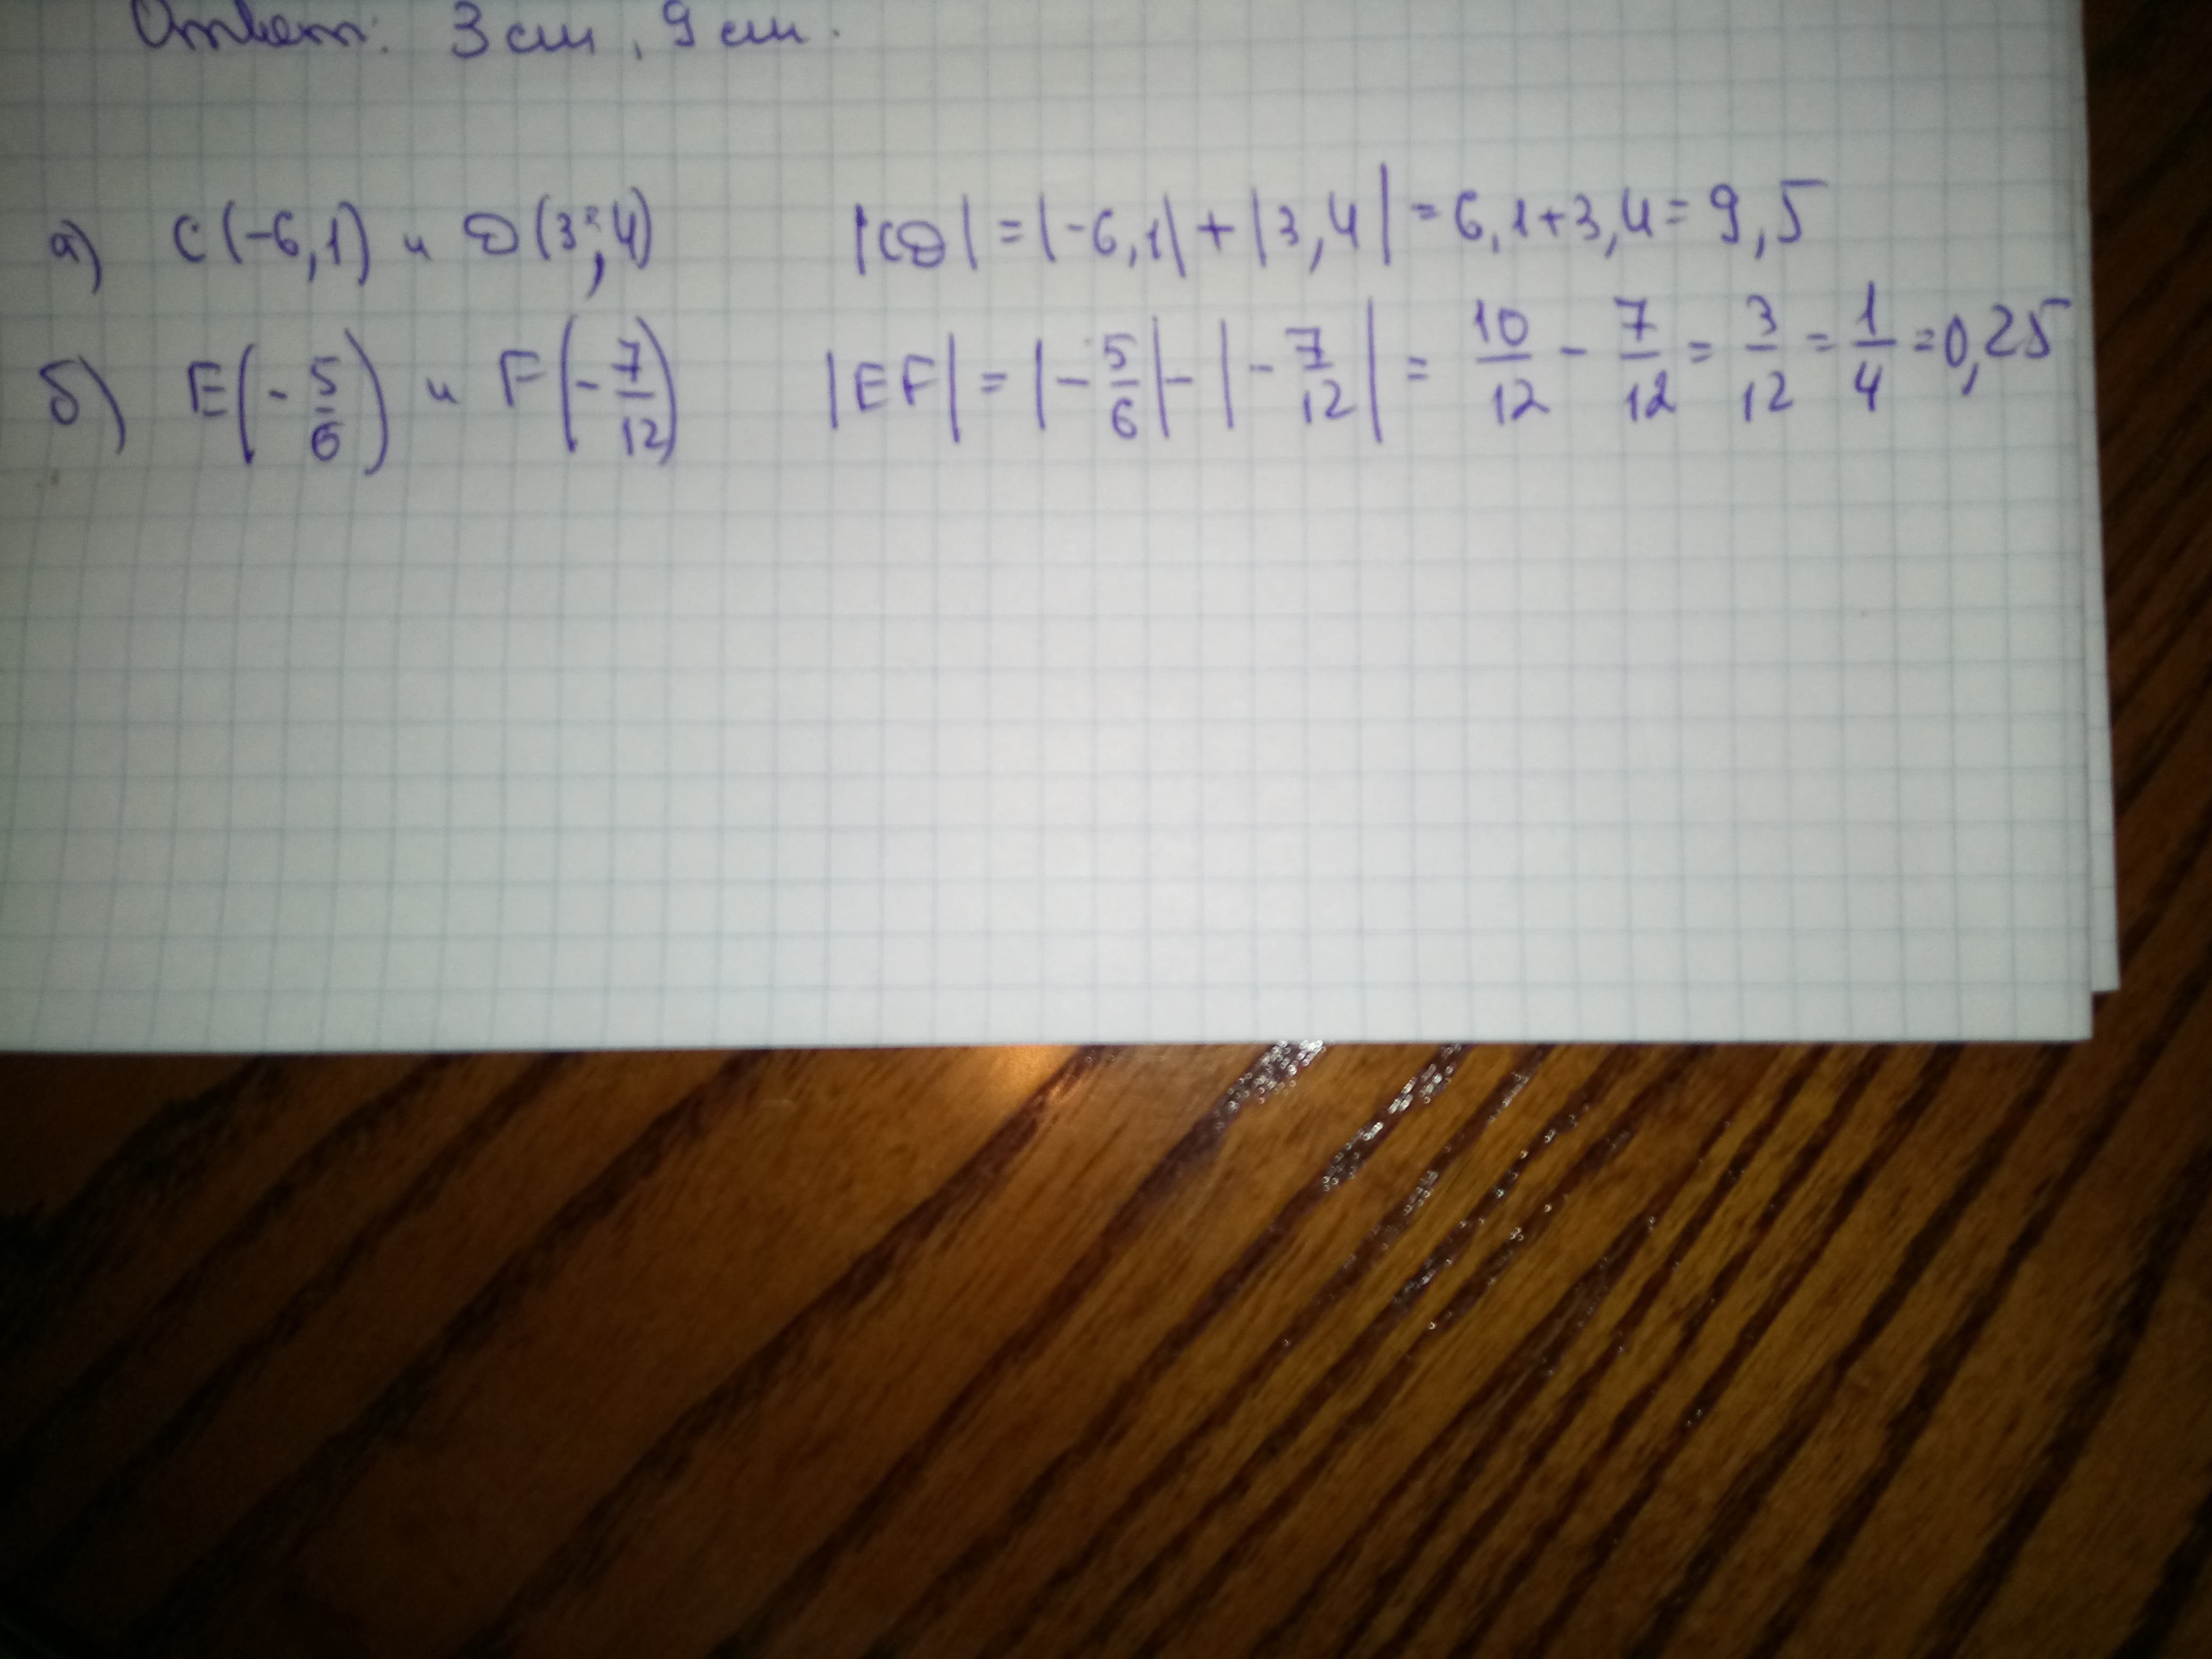 Ответ: 3 см, 9 см.
а) C(-6,1) и D(3,4) |CD| = |-6,1| + |3,4| = 6,1+3,4 = 9,5
б) E(-5/6) и F(-7/12) |EF| = |-5/6| - |-7/12| = 10/12 - 7/12 = 3/12 = 1/4 = 0,25